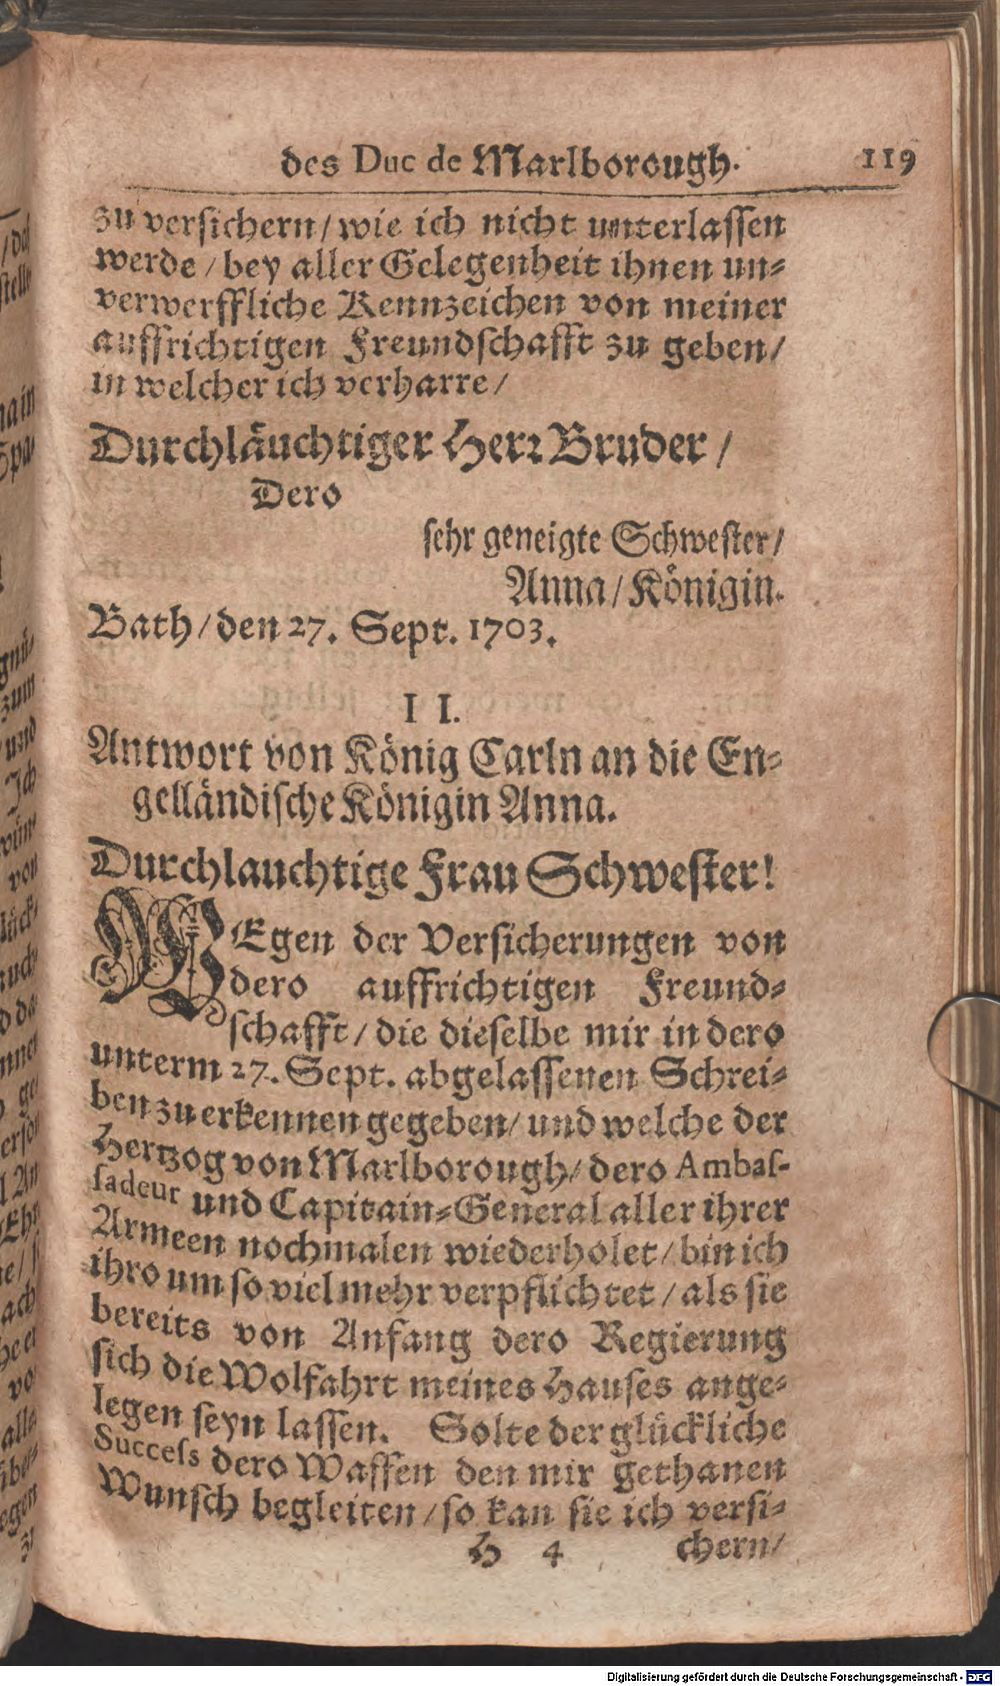 des Duc de Marlborough. 119
zu versichern/ wie ich nicht unterlassen
werde/ bey aller Gelegenheit ihnen un-
verwerffliche Kennzeichen von meiner
auffrichtigen Freundschafft zu geben/
in welcher ich verharre/
Durchläuchtiger Herr Bruder/
Dero
sehr geneigte Schwester/
Anna/ Königin.
Bath/ den 27. Sept. 1703.
II.
Antwort von König Carln an die En-
gelländische Königin Anna.
Durchlauchtige Frau Schwester!
WEgen der Versicherungen von
dero auffrichtigen Freund-
schafft/ die dieselbe mir in dero
unterm 27. Sept. abgelassenen Schrei-
ben zu erkennen gegeben/ und welche der
Hertzog von Marlborough/ dero Ambas-
sadeur und Capitain-General aller ihrer
Armeen nochmalen wiederholet/ bin ich
ihro um so viel mehr verpflichtet/ als sie
bereits von Anfang dero Regierung
sich die Wolfahrt meines Hauses ange-
legen seyn lassen. Solte der glückliche
Success dero Waffen den mir gethanen
Wunsch begleiten/ so kan sie ich versi-
H 4 chern/
Digitalisierung gefördert durch die Deutsche Forschungsgemeinschaft - DFG